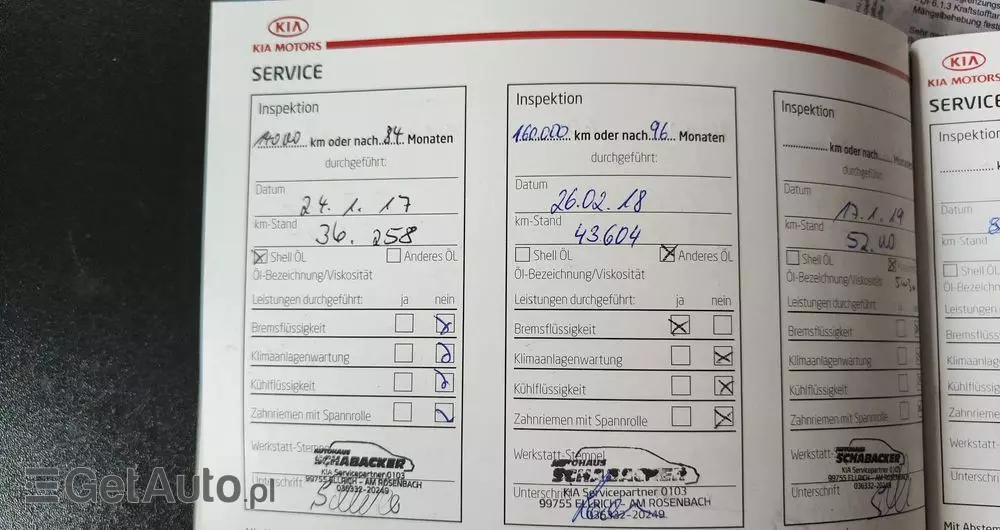 KIA
KIA MOTORS
SERVICE
Inspektion
km oder nach 84 Monaten
durchgeführt:
Datum
24. 1. 17
km-Stand
36. 258
Shell ÖL Anderes ÖL
Öl-Bezeichnung/Viskosität
Leistungen durchgeführt: ja nein
Bremsflüssigkeit
Klimaanlagenwartung
Kühlflüssigkeit
Zahnriemen mit Spannrolle
Werkstatt-Stempel
AUTOHAUS
SCHABACKER
KIA Servicepartner 0103
99755 ELLRICH - AM ROSENBACH
036332-20249
Unterschrift
Inspektion
160.000 km oder nach 96 Monaten
durchgeführt:
Datum
26.02.18
km-Stand
43.604
Shell ÖL Anderes ÖL
Öl-Bezeichnung/Viskosität
Leistungen durchgeführt: ja nein
Bremsflüssigkeit
Klimaanlagenwartung
Kühlflüssigkeit
Zahnriemen mit Spannrolle
Werkstatt-Stempel
AUTOHAUS
SCHABACKER
KIA Servicepartner 0103
99755 ELLRICH - AM ROSENBACH
036332-20249
Unterschrift
Inspektion
km oder nach Monaten
durchgeführt:
Datum
17.1.19
km-Stand
Shell ÖL
Öl-Bezeichnung/Viskosität
Leistungen durchgeführt:
Bremsflüssigkeit
Klimaanlagenwartung
Kühlflüssigkeit
Zahnriemen mit Spannrolle
Werkstatt-Stempel
AUTOHAUS
SCHABACKER
KIA Servicepartner 0103
99755 ELLRICH - AM ROSENBACH
036332-20249
Unterschrift
KIA
KIA MOTORS
SERVICE
Inspektion
Datum
km-Stand
Shell ÖL
GetAuto.pl